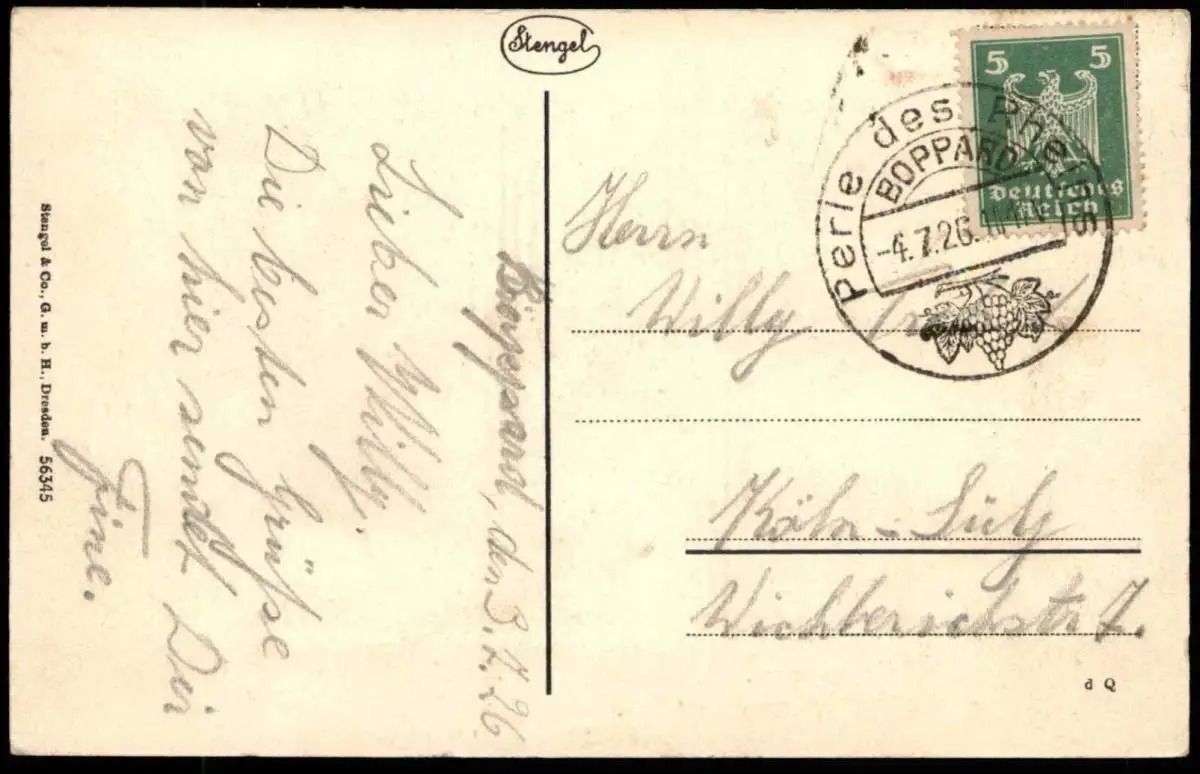 Stengel
Boppard, den 3.7.26
Lieber Willy,
Die besten Grüße
von hier sendet Dir
Fine.
Stengel & Co., G. m. b. H., Dresden. 56345
5 5
Deutsches
Reich
Perle des Rheins
BOPPARD
-4.7.26.
Herrn
Willy
Köln-Sülz
Wichterichstr 7.
d Q